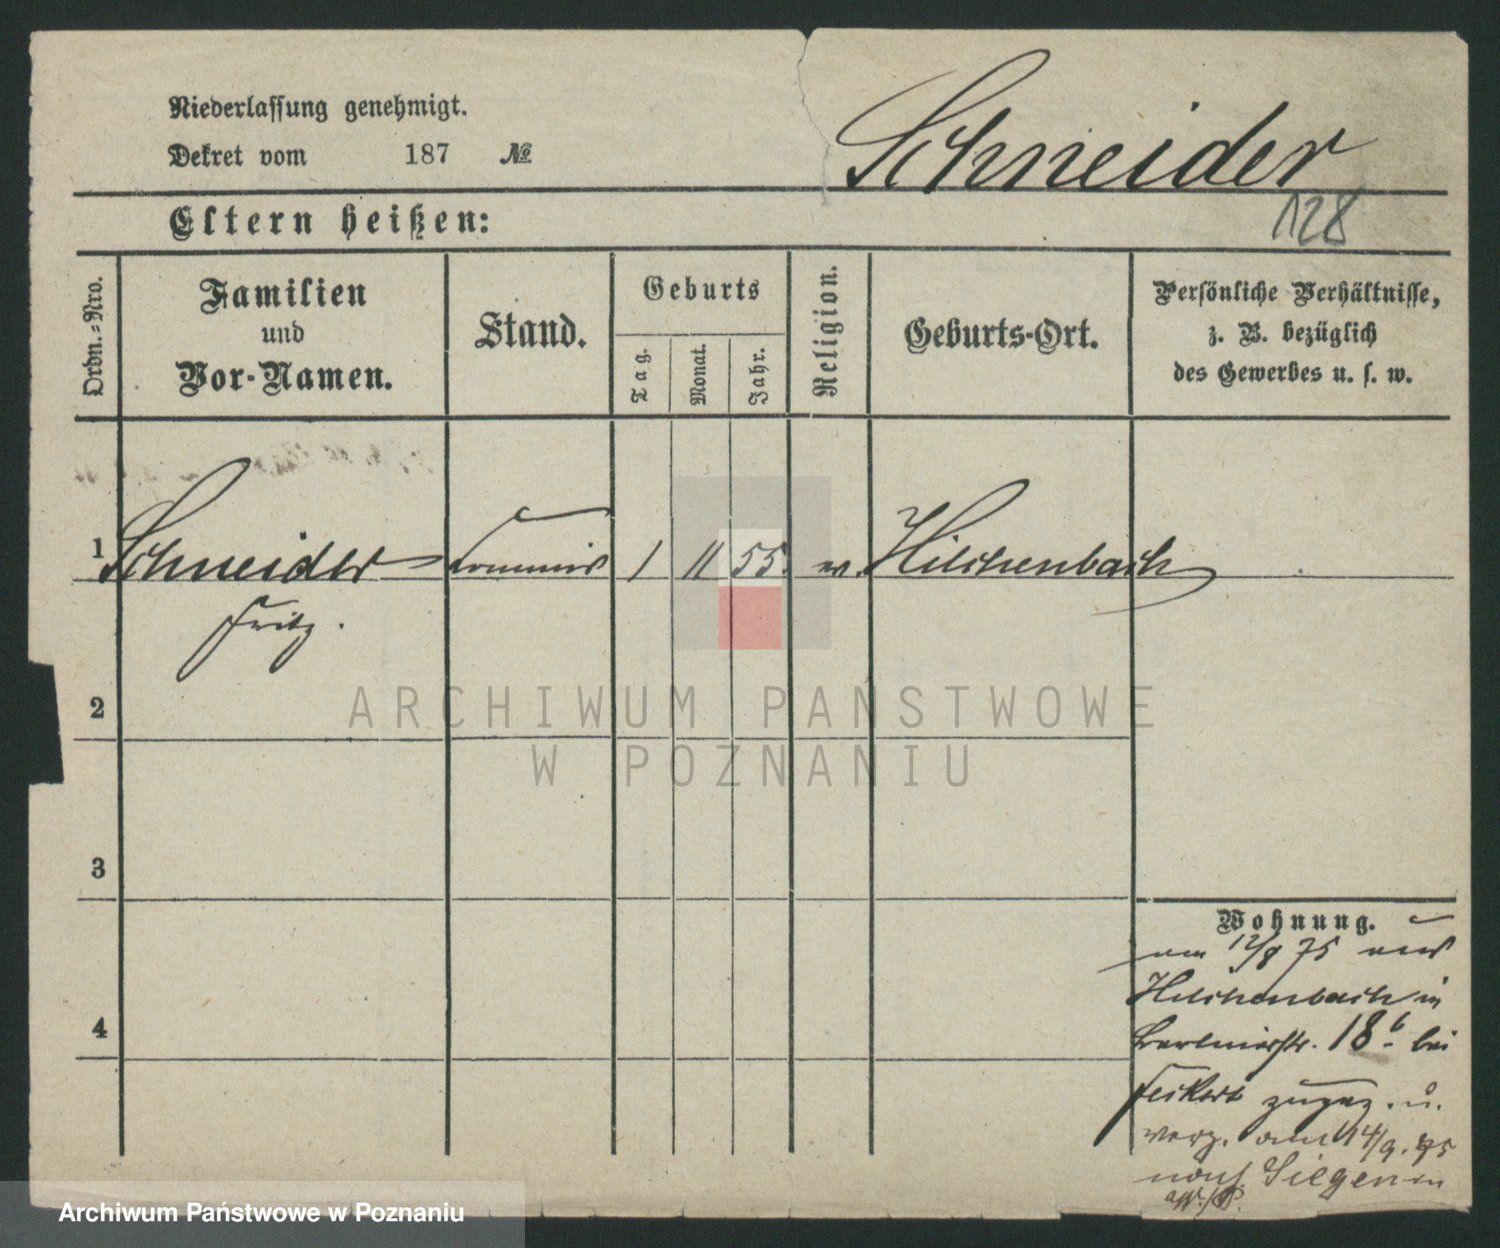 Niederlassung genehmigt.
Dekret vom 187 №
Schneider
Eltern heißen:
128
Ordn.-Nro.
Familien
und
Vor-Namen.
Stand.
Geburts
Tag.
Monat.
Jahr.
Religion.
Geburts-Ort.
Persönliche Verhältnisse,
z. B. bezüglich
des Gewerbes u. s. w.
1 Schneider Commis 1 11 55. ev. Hilchenbach
Fritz.
ARCHIWUM PAŃSTWOWE
2
W POZNANIU
3
Wohnung.
am 12/8 75 aus
Hilchenbach in
18 b bei
zugez. u.
verz. am 14/9. 75
nach Siegen
4
Archiwum Państwowe w Poznaniu